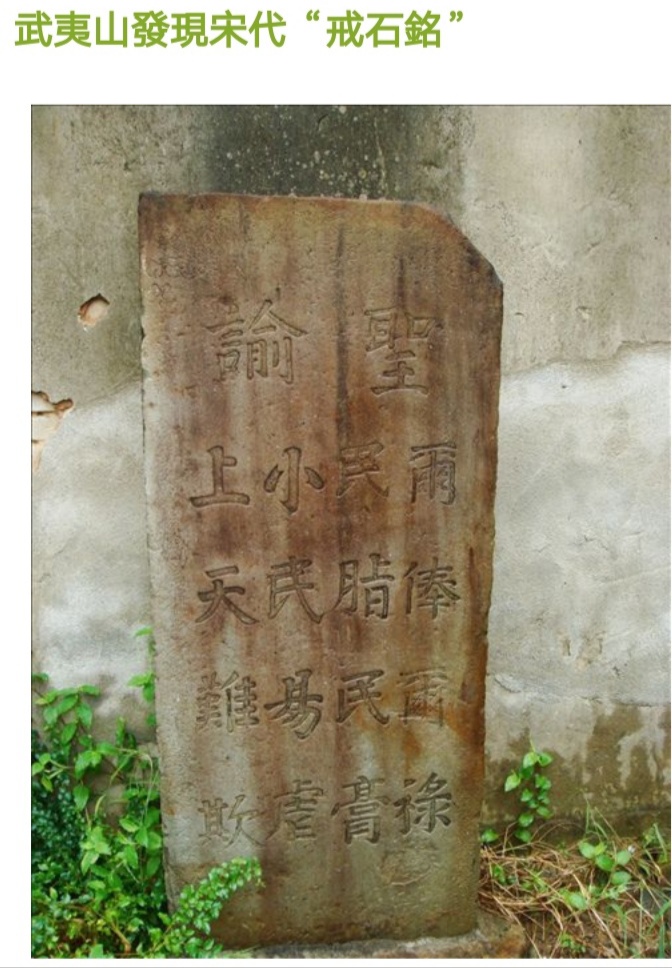 武夷山發現宋代“戒石銘”
聖諭
爾俸爾祿
民脂民膏
小民易虐
上天難欺